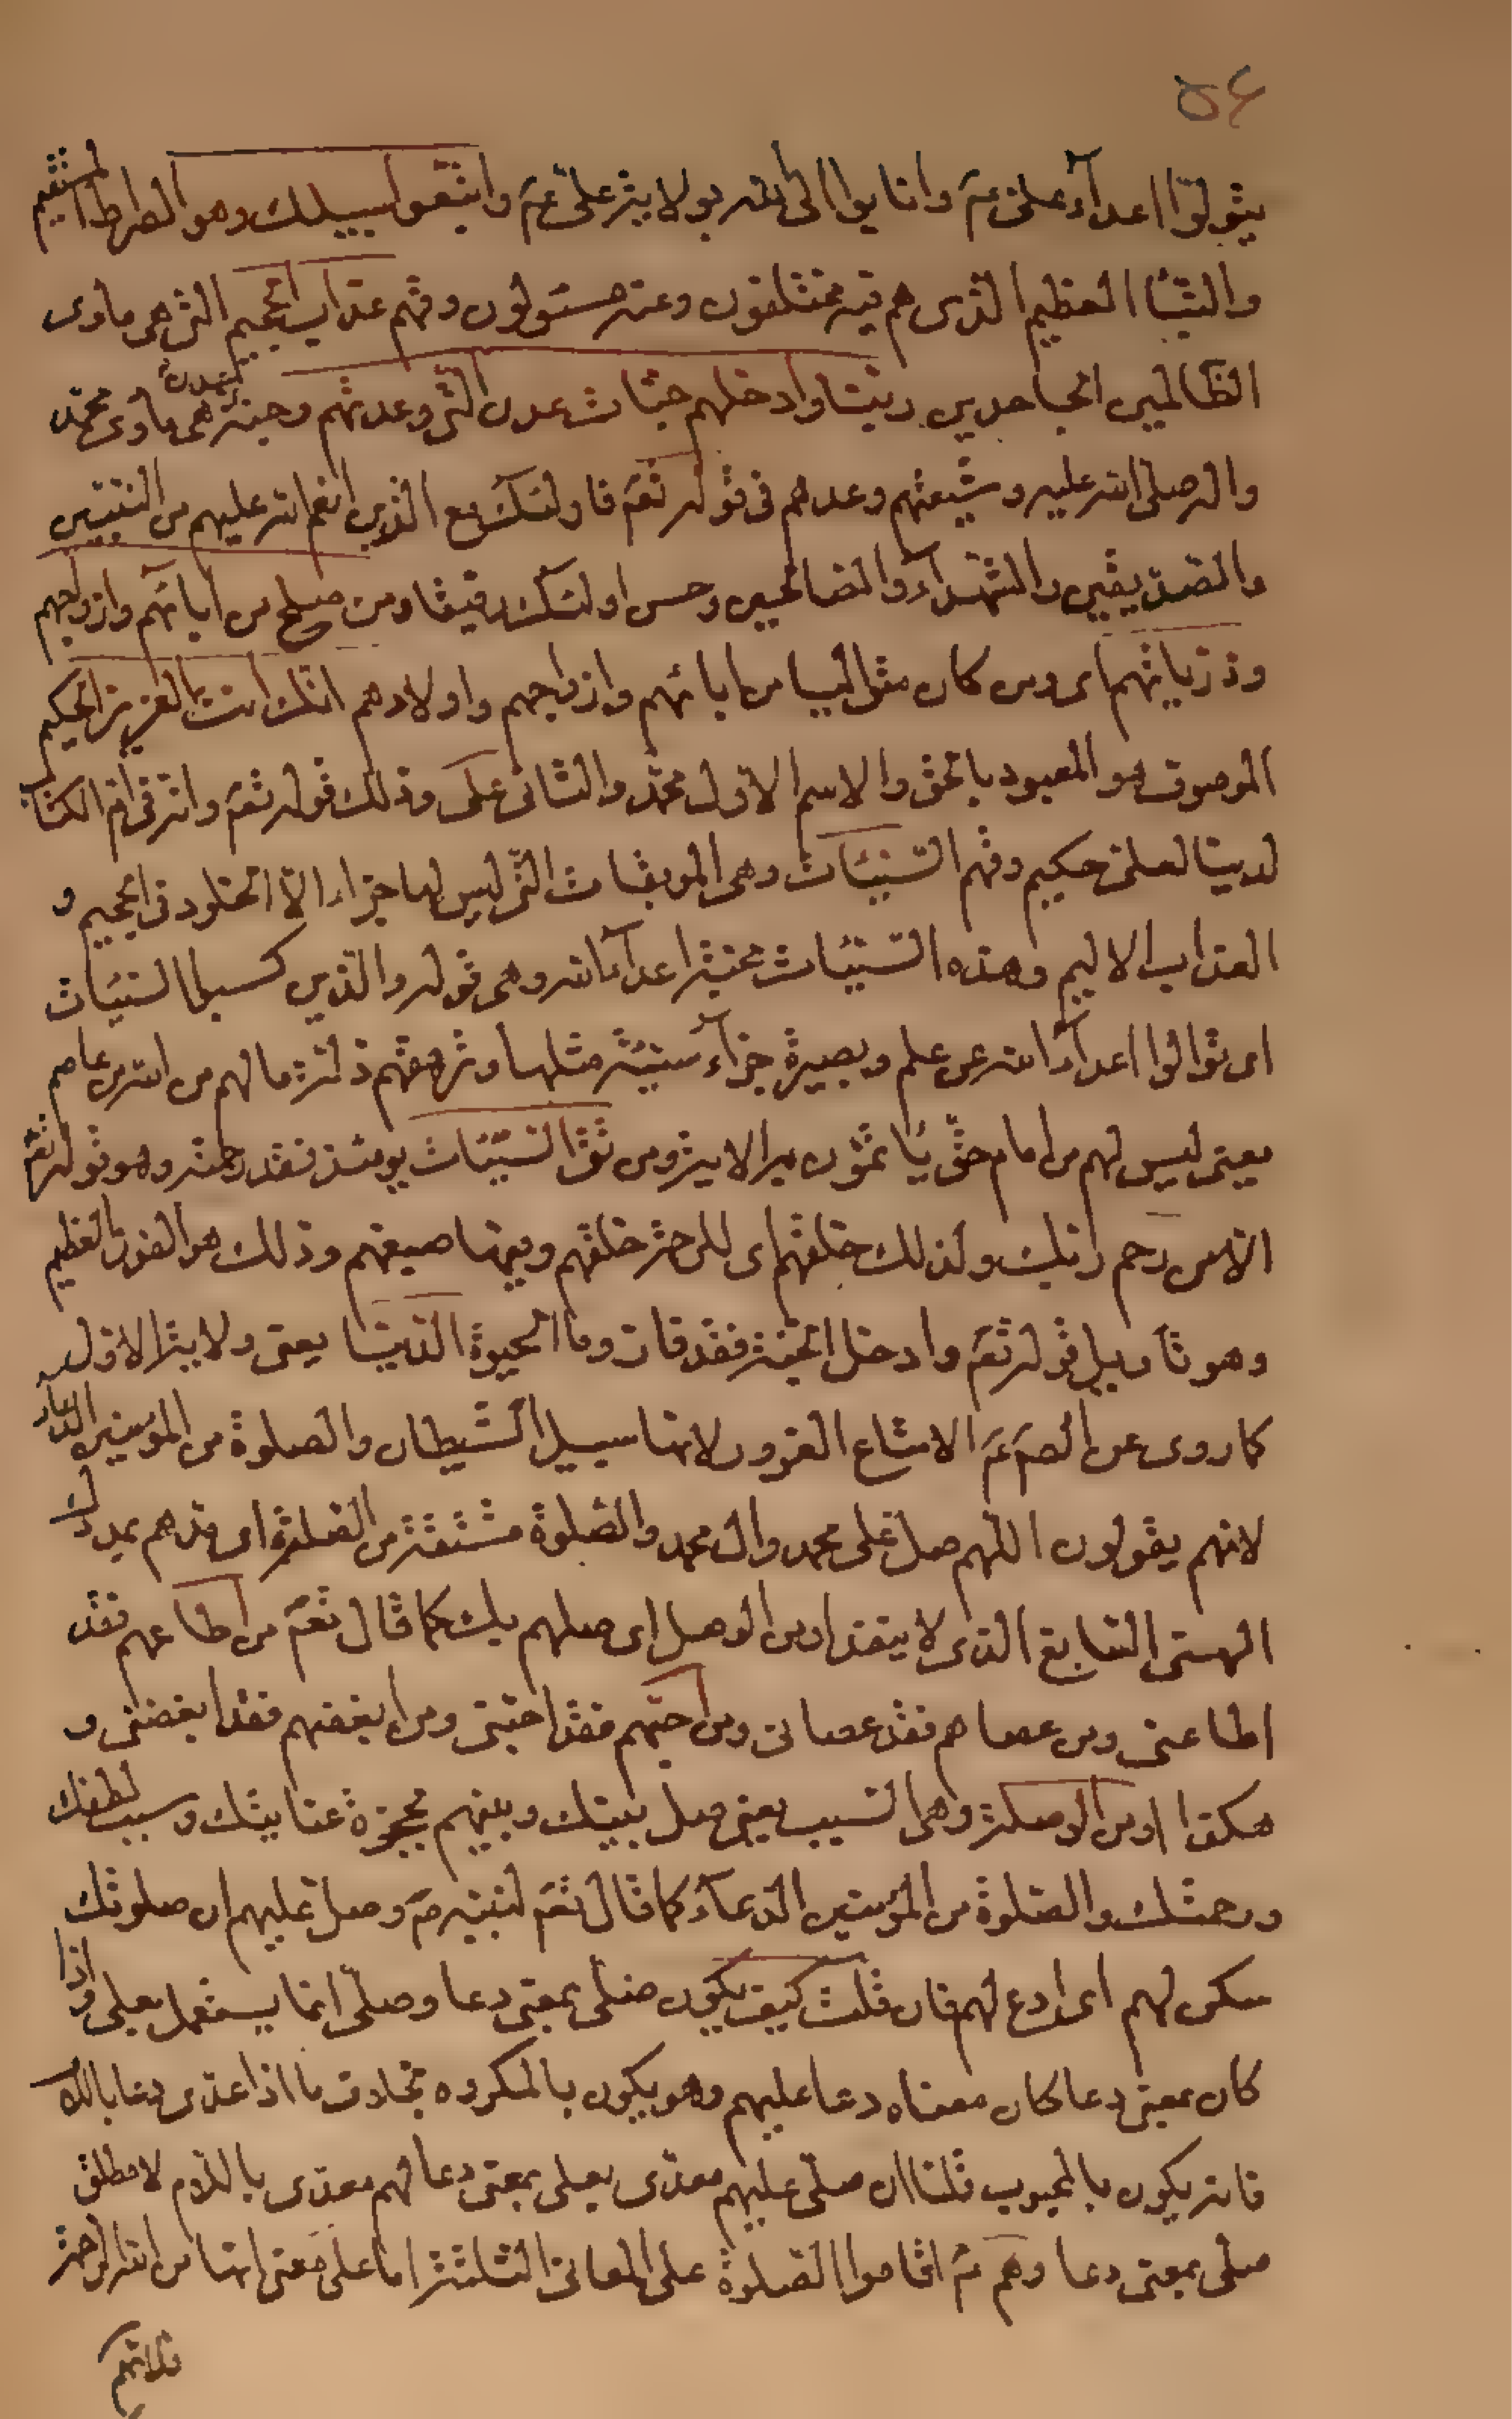 ٥٤
يتولوا اعدآء علىّ عم وانابوا الى الله بولاية علىّ عم واتبعوا سبيلك وهو الصراط المستقيم
والنبأ العظيم الذى هم فيه مختلفون وعنه مسئولون وقهم عذاب الجحيم التى هى ماوى
الظالمين الجاحدين ربنا وادخلهم جنات عدن التى وعدتهم وجنة عدن هى ماوى محمّد
واله صلى الله عليه وشيعتهم وعدهم فى قوله تعم فاولئك مع الذين انعم الله عليهم من النبيين
والصديقين والشهدآء والصالحين وحسن اولئك رفيقا ومن صلح من ابائهم وازواجهم
وذرياتهم اى ومن كان متواليا من ابائهم وازواجهم واولادهم انك انت العزيز الحكيم
الموصوف هو المعبود بالحق والاسم الاول محمّد والثانى على وذلك قوله تعم وانه فى ام الكتاب
لدينا لعلىّ حكيم وقهم السيئات وهى الموبقات التى ليس لها جزاء الّا الخلود فى الجحيم و
العذاب الاليم وهذه السيئات محبة اعدآء الله وهى قوله والذين كسبوا السيئات
اى توالوا اعدآء الله عن علم وبصيرة جزآء سيئة مثلها وترهقهم ذلة مالهم من الله من عاصم
يعنى ليس لهم من امام حقّ يأتمّون به الاية ومن تق السيّئات يومئذ فقد رحمته وهو قوله تعم
الّا من رحم ربك ولذلك خلقهم اى للرحمة خلقهم وبها صبغهم وذلك هو الفوز العظيم
وهو تأويل قوله تعم وادخل الجنة فقد فاز وما الحيوة الدنيا يعنى ولاية الاول
كما روى عن الصم عم الا متاع الغرور لانها سبيل الشيطان والصلوة من المؤمنين الدعآء
لانهم يقولون اللهم صل على محمد وال محمد والصلوة مشتقة من الصلة اى مدهم بمددك
الهنى السابغ الذى لا ينفد او من الوصل اى صلهم بك كما قال تعم من اطاعهم فقد
اطاعنى ومن عصاهم فقد عصانى ومن احبّهم فقد احبّنى ومن ابغضهم فقد ابغضنى و
هكذا او من الوصلة وهى السبب يعنى صل بينك وبينهم بحجزة عنايتك وسبب لطفك
ورحمتك والصلوة من المؤمنين الدعآء كما قال تعم لنبيه صم وصل عليهم ان صلوتك
سكن لهم اى ادع لهم فان قلت كيف يكون صلى بمعنى دعا وصلّى انما يستعمل بعلى واذا
كان بمعنى دعا كان معناه دعا عليهم وهو يكون بالمكروه بخلاف ما اذا عدى دعا باللام
فانه يكون بالمحبوب قلنا ان صلّى عليهم معدّى بعلى بمعنى دعا لهم معدّى باللام لا مطلق
صلى بمعنى دعا وهم عم اقاموا الصلوة على المعانى الثلثة اما على معنى انها من الله الرحمة
فلانهم